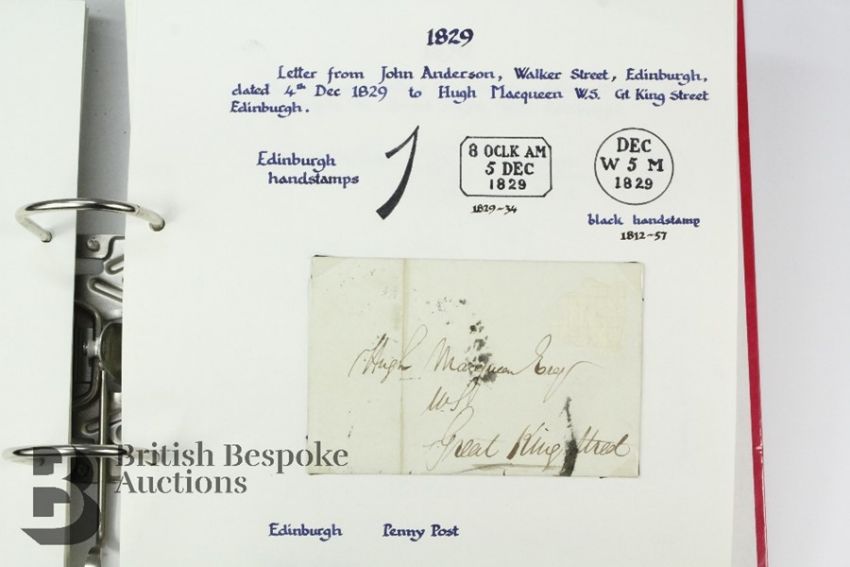 1829
Letter from John Anderson, Walker Street, Edinburgh,
dated 4th Dec 1829 to Hugh Macqueen W.S. Gt King Street
Edinburgh.
Edinburgh
handstamps
8 OCLK AM
5 DEC
1829
1829-34
DEC
W 5 M
1829
black handstamp
1812-57
Hugh Macqueen Esqr
W.S.
Great King Street
British Bespoke
Auctions
Edinburgh Penny Post